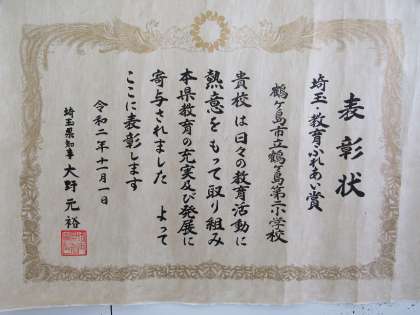 表彰状
埼玉・教育ふれあい賞
鶴ヶ島市立鶴ヶ島第二小学校
貴校は日々の教育活動に
熱意をもって取り組み
本県教育の充実及び発展に
寄与されました よって
ここに表彰します
令和二年十一月一日
埼玉県知事 大野元裕